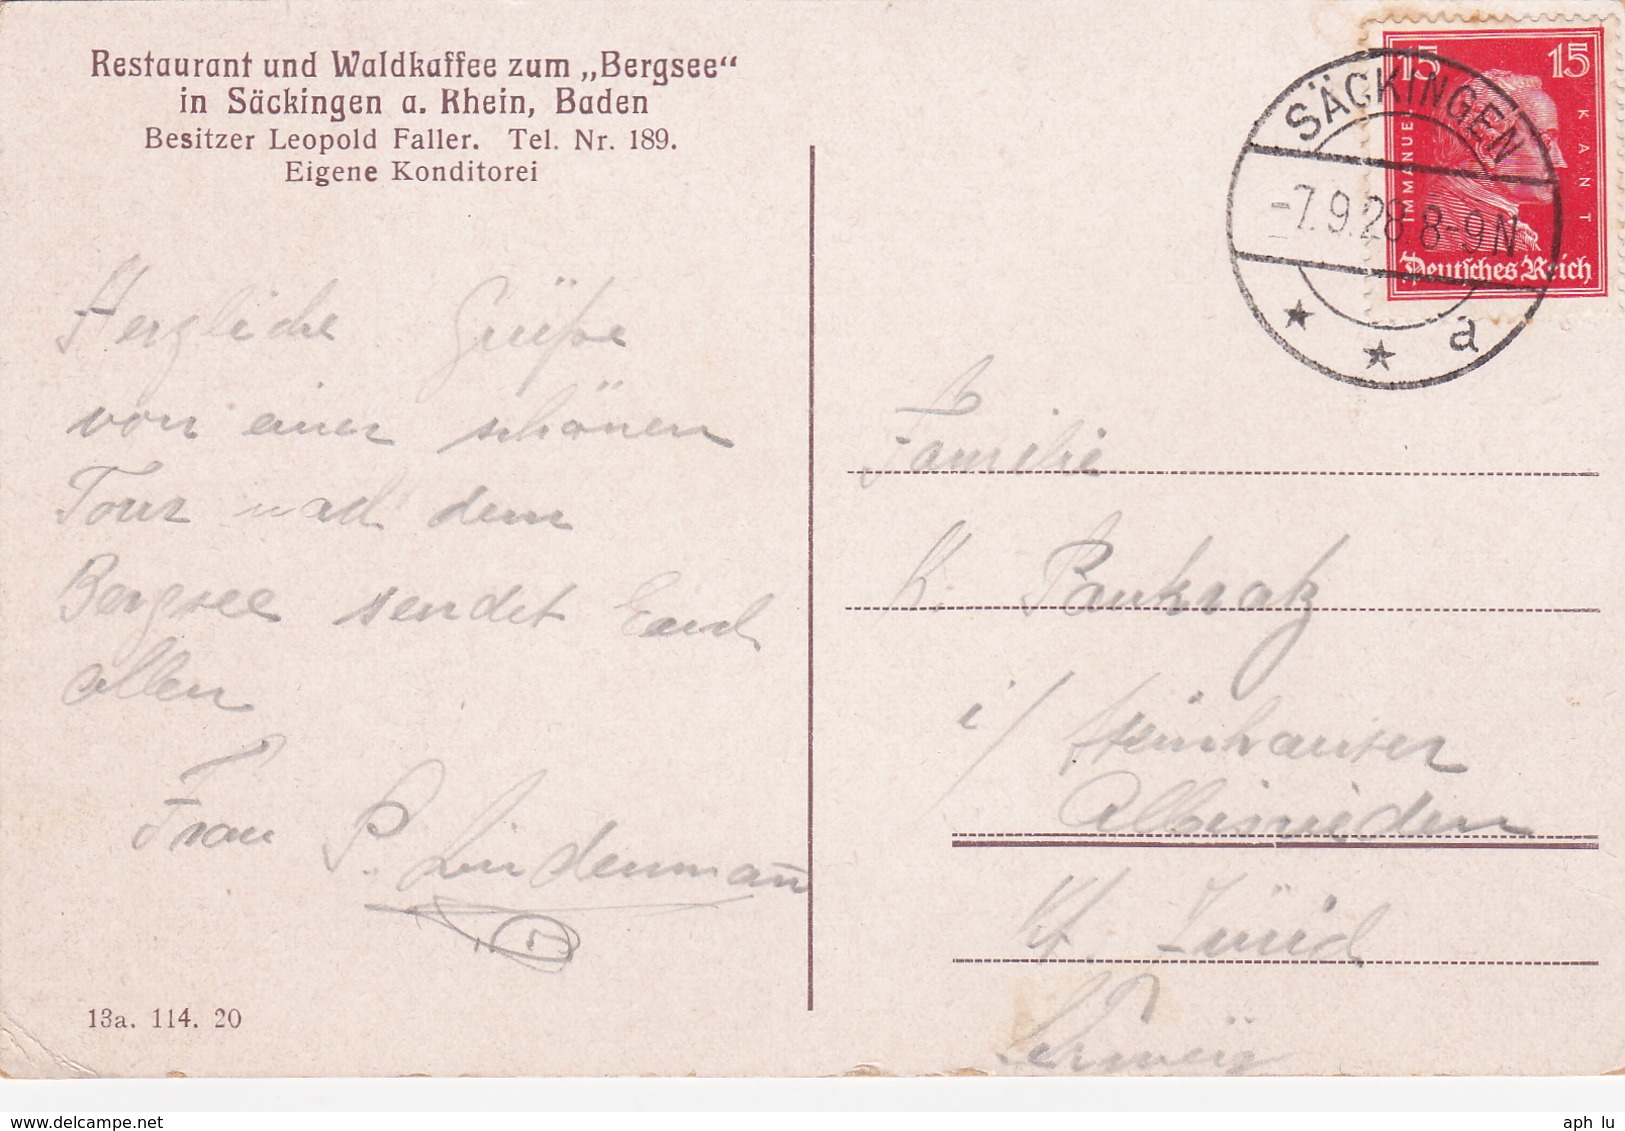 Restaurant und Waldkaffee zum „Bergsee“
in Säckingen a. Rhein, Baden
Besitzer Leopold Faller. Tel. Nr. 189.
Eigene Konditorei
Herzliche Grüße
von einer schönen
Tour nach dem
Bergsee sendet Euch
allen
Frau P. Lindenmann
13a. 114. 20
15 15
IMMANUEL KANT
Deutsches Reich
SÄCKINGEN
-7.9.28 8-9N
a
Familie
K. Pankratz
i/ Steinhauser
Albisrieden
Kt. Zürich
Schweiz
www.delcampe.net
aph lu